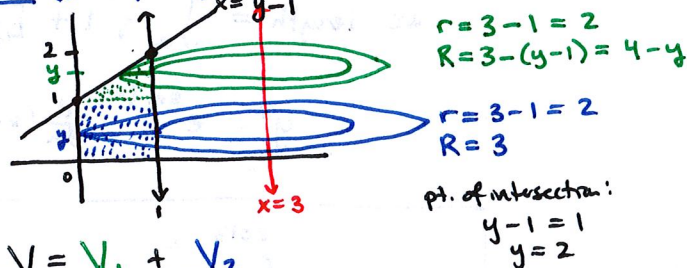 x = y-1
2
y
1
y
0
1
x=3
r = 3-1 = 2
R = 3-(y-1) = 4-y
r = 3-1 = 2
R = 3
pt. of intersection:
y-1 = 1
y = 2
V = V₁ + V₂